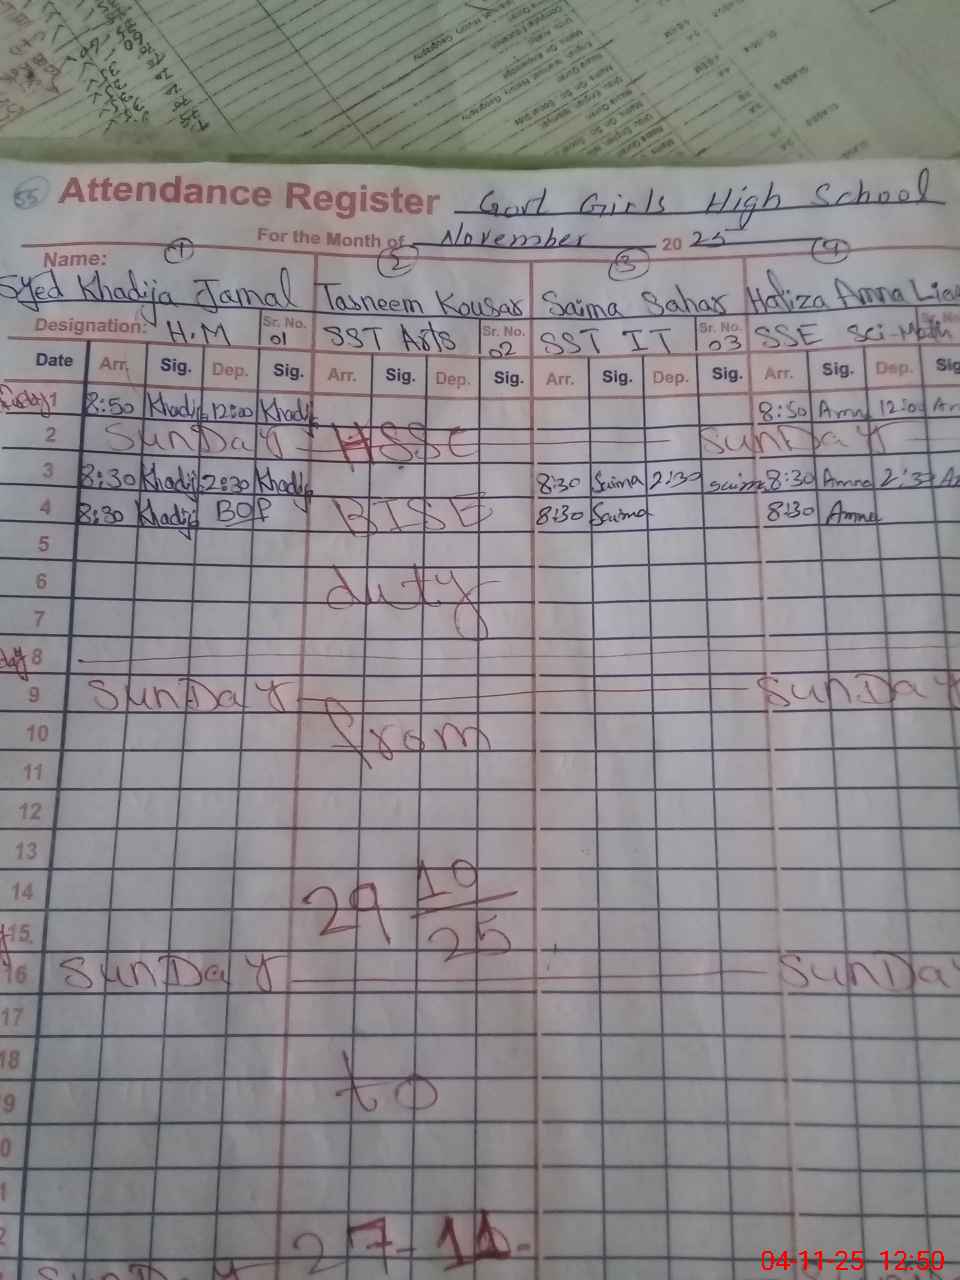 55 Attendance Register Govt Girls High School
For the Month of November 20 25
Name: 1 2 3 4
Syed Khadija Jamal Tasneem Kousar Saima Sahar Hafiza Amna
Designation: H.M Sr. No. 01 SST Arts Sr. No. 02 SST IT Sr. No. 03 SSE Sci-Math
Date Arr. Sig. Dep. Sig. Arr. Sig. Dep. Sig. Arr. Sig. Dep. Sig. Arr. Sig. Dep. Sig
1 8:50 Khadija 12:00 Khadija 8:50 Amna 12:00
2 SunDay HSSC SunDay
3 8:30 Khadija 2:30 Khadija 8:30 Saima 2:30 Saima 8:30 Amna 2:30
4 8:30 Khadija BOP BISE 8:30 Saima 8:30 Amna
5
6 duty
7
8
9 SunDay SunDay
10 from
11
12
13
14 29 10/25
15
16 SunDay SunDay
17
18
9 to
0
1
2 27-11-
SunDay
04-11-25 12:50